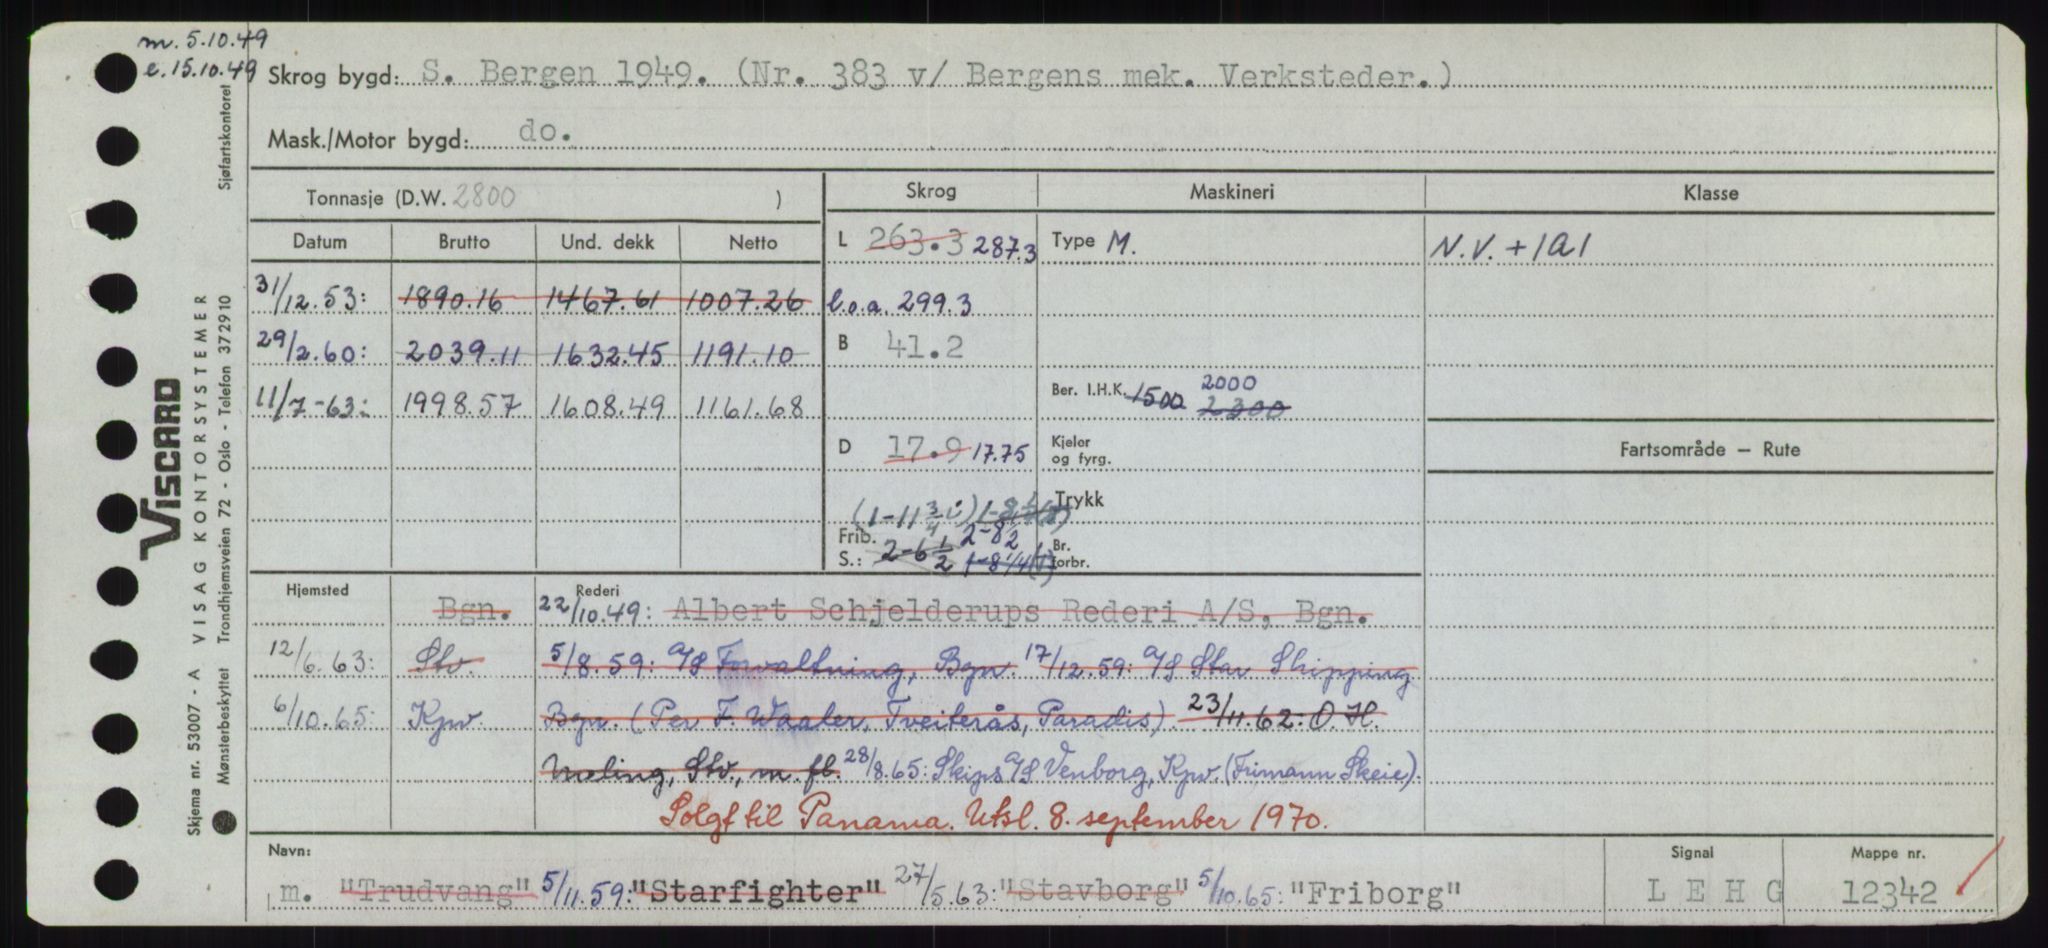 m. 5.10.49
e. 15.10.49
Skrog bygd: S. Bergen 1949. (Nr. 383 v/ Bergens mek. Verksteder.)
Mask./Motor bygd: do.
Tonnasje (D.W. 2800 )
Skrog Maskineri Klasse
Datum Brutto Und. dekk Netto
L 263.3 287.3 Type M. N.V. + 1A1
31/12.53: 1890.16 1467.61 1007.26 l.o.a. 299.3
29/2.60: 2039.11 1632.45 1191.10 B 41.2
11/7-63: 1998.57 1608.49 1161.68 Ber. I.H.K. 1500 2300 2000
D 17.9 17.75 Kjeler og fyrg. Fartsområde – Rute
(1-11 3/4 i) Trykk
Frib. S.: 2-6 1/2 2-8 1/2 1-8 1/4 Br. forbr.
Hjemsted Rederi
Bgn. 22/10.49: Albert Schjelderups Rederi A/S, Bgn.
12/6.63: Stv. 5/8.59: A/S Forvaltning, Bgn. 17/12.59: A/S Star Shipping
6/10.65: Kpv. Bgn. (Per F. Waaler, Tveiterås, Paradis). 23/11.62: O.H.
Meling, Stv., m. fl. 28/8.65: Skips A/S Venborg, Kpv. (Frimann Skeie).
Solgt til Panama. Utsl. 8. september 1970.
Navn: Signal Mappe nr.
m. "Trudvang" 5/11.59: "Starfighter" 27/5.63: "Stavborg" 5/10.65: "Friborg" L E H G 12342
Sjøfartskontoret
VISCARD
VISAG KONTORSYSTEMER
Trondhjemsveien 72 - Oslo - Telefon 372910
Skjema nr. 53007 - A
Mønsterbeskyttet